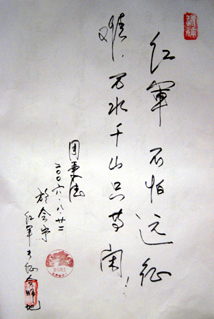 红軍不怕远征
难万水千山只等闲！
周
二〇〇六.八.廿二
於会宁
红軍长征会师地